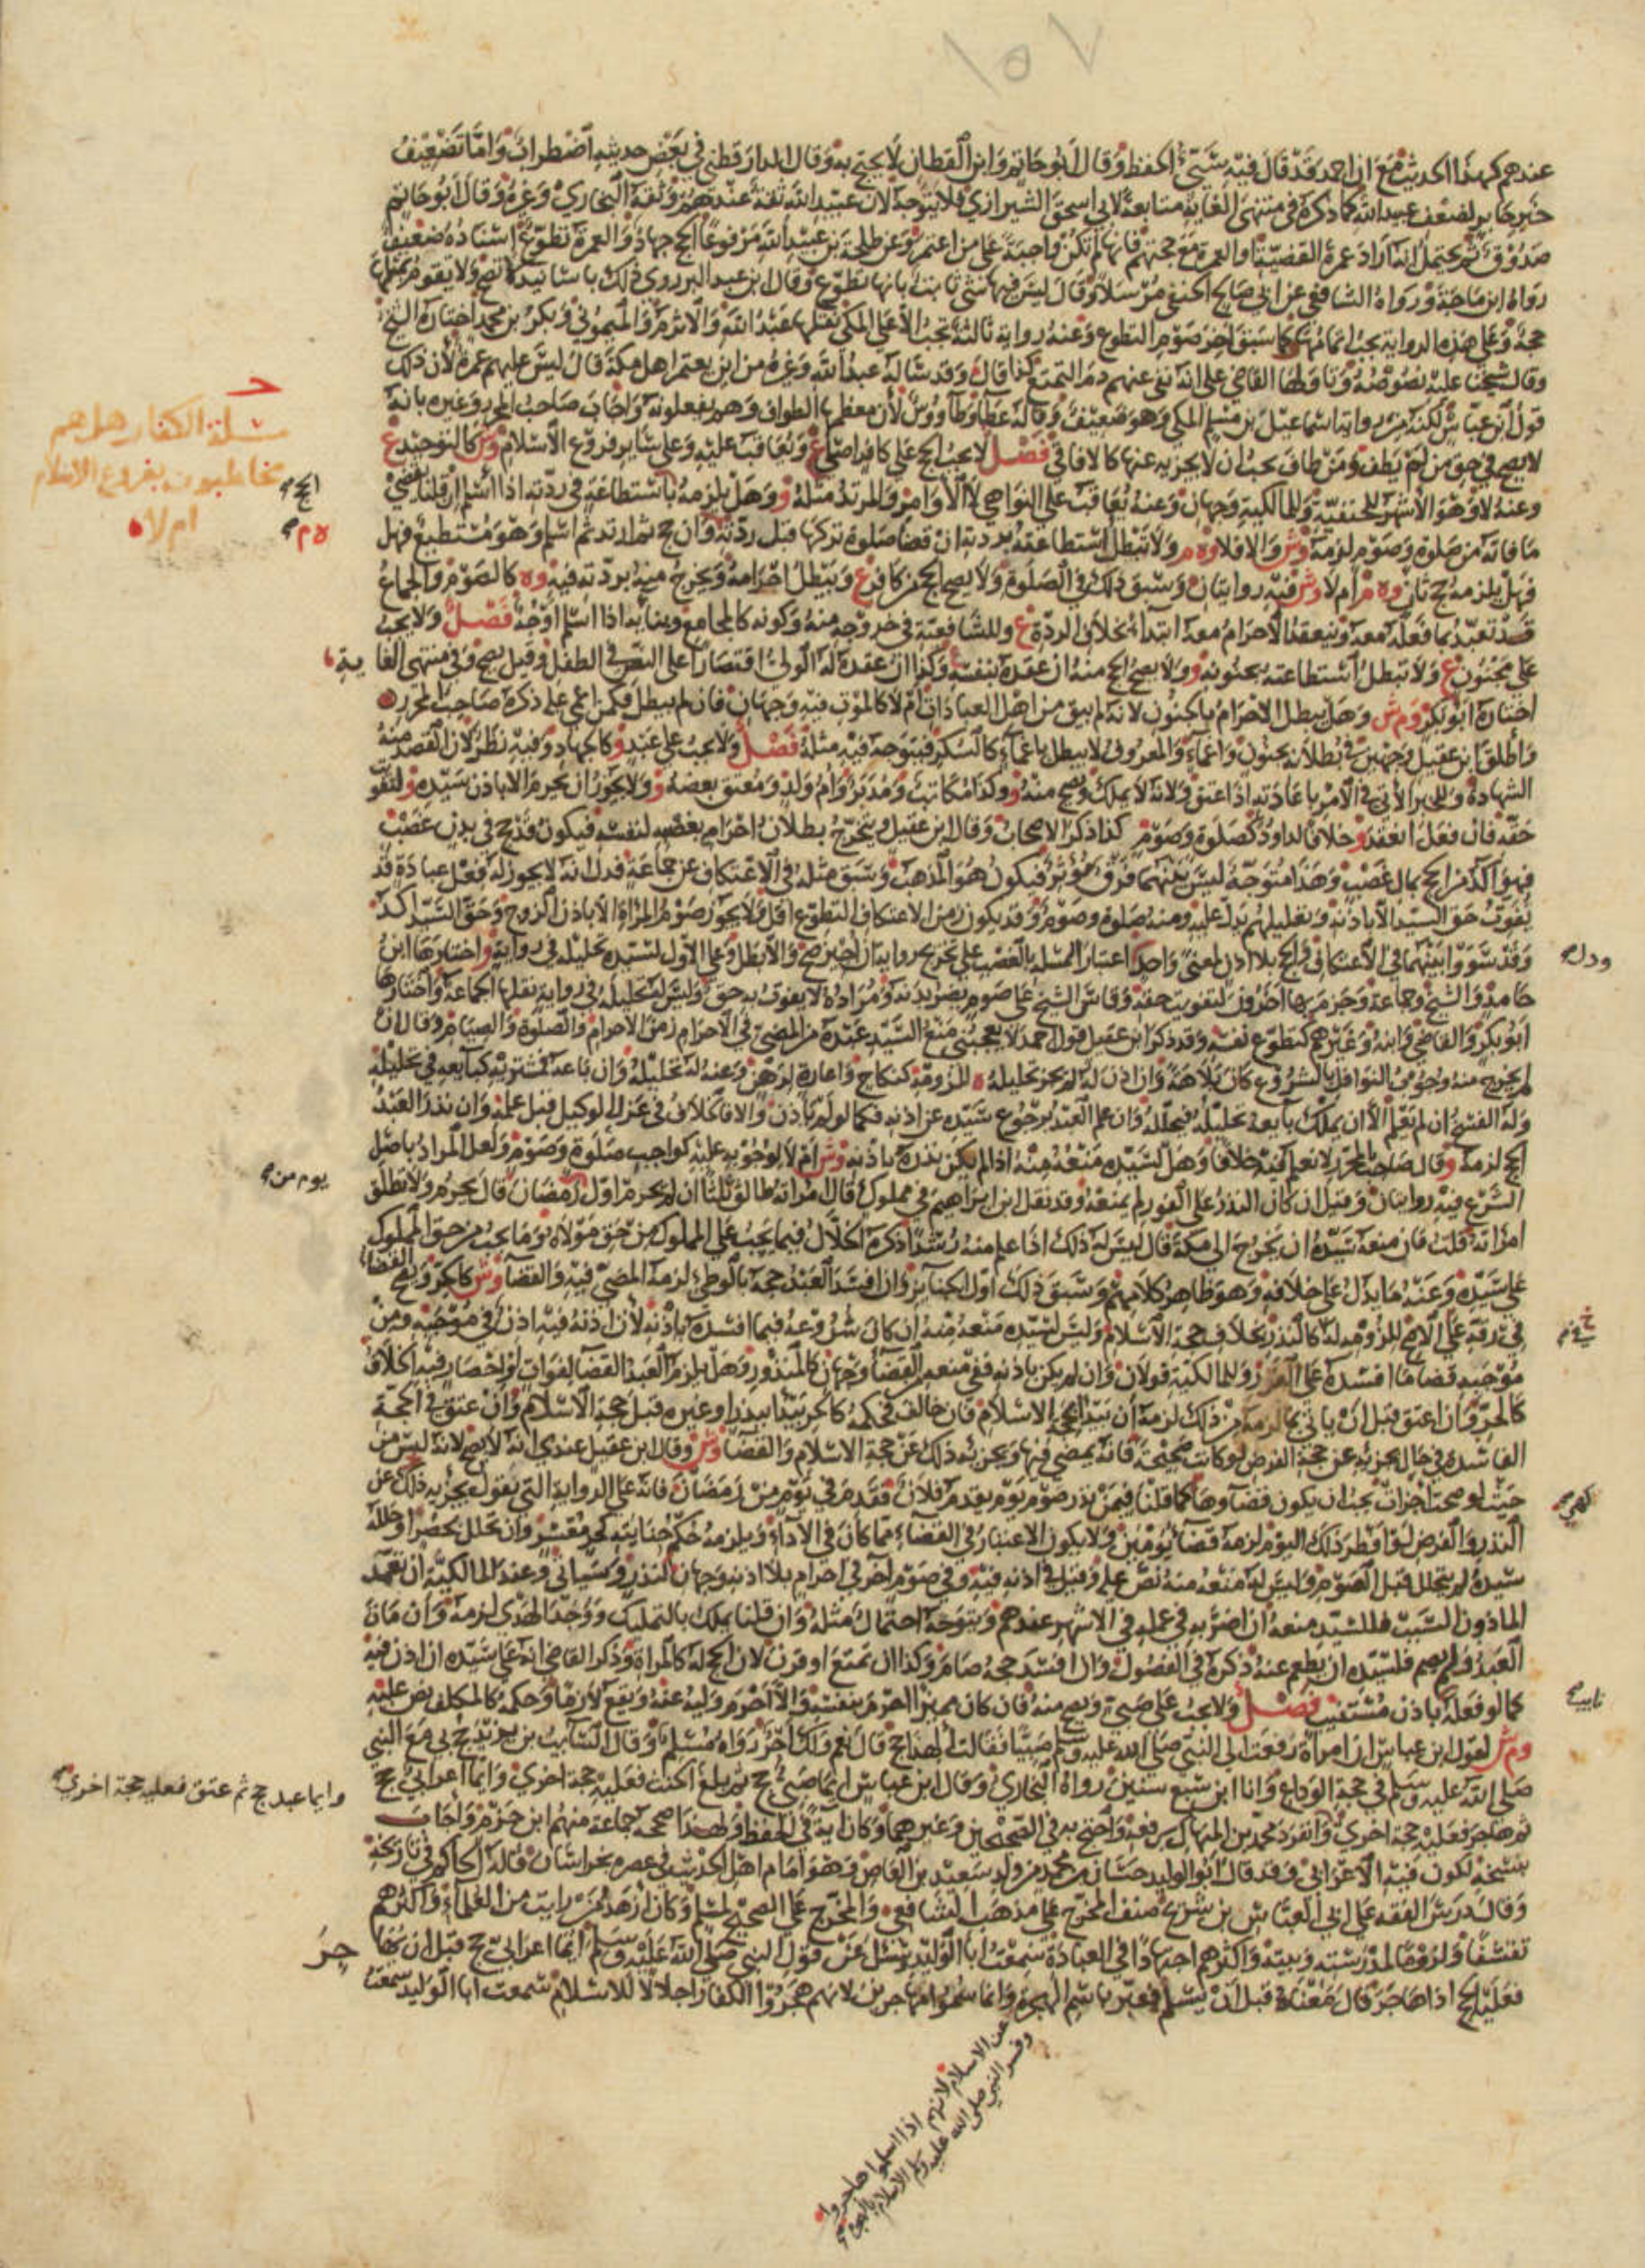 ١٥٧
عندهم كهذا الحديث مع ان احمد قد قال فيه سيئ الحفظ وقال ابو حاتم وابن القطان لا يحتج به وقال الدارقطني في بعض حديثه اضطراب واما تضعيف
خبر جابر لضعف عبيد الله كما ذكره في منتهى الغاية متابعة لابي اسحق الشيرازي فلا يتوجه لان عبيد الله ثقة عندهم وثقه البخاري وغيره وقال ابو حاتم
صدوق ثم يحتمل انه اراد عمرة القضية او العمرة مع حجتهم فانها لم تكن واجبة على من اعتمر وعن طلحة بن عبيد الله مرفوعا الحج جهاد والعمرة تطوع اسناده ضعيف
رواه ابن ماجة ورواه الشافعي عن ابي صالح الحنفي مرسلا وقال ليس فيها شي ثابت بانها تطوع وقال ابن عبد البر روي ذلك باسانيد لا تصح ولا يقوم بمثلها
حجة وعلى هذه الرواية يجب اتمامها كما سبق اخر صوم التطوع وعنه رواية ثالثة تجب الا على المكي نقلها عبد الله والاثرم والميموني وبكر بن محمد اختاره الشيخ
وقال شيخنا عليه نصوصه وتاولها القاضي على انه نفى عنهم دم التمتع كذا قال وقد ساله عبد الله وغيره من اين يعتمر اهل مكة قال ليس عليهم عمرة لان ذلك
قول ابن عباس لكنه من رواية اسماعيل بن مسلم المكي وهو ضعيف وقاله عطا وطاووس لان معظمها الطواف وهم يفعلونه واجاب صاحب المحرر وغيره بانه
لا يصح في حق من لم يطف ومن طاف يجب ان لا يجزيه عنها كالافاقي فصل لا يجب الحج على كافر اصلي ع ويعاقب عليه وعلى ساير فروع الاسلام وش كالتوحيد ع
وعنه لا وهو الاشهر للحنفية وللمالكية وجهان وعنه يعاقب على النواهي لا الاوامر والمرتد مثله و وهل يلزمه باستطاعة في ردته اذا اسلم ان قلنا يقضي
ما فاته من صلوة وصوم لزمه وش والا فلا وه م ولا تبطل استطاعته بردته ان قضا صلوة تركها قبل ردته وان حج ثم ارتد ثم اسلم وهو مستطيع فهل
فهل يلزمه حج ثان وه م ام لا وش فيه روايتان وسبق ذلك في الصلوة ولا يصح الحج من كافر ع ويبطل احرامه ويخرج منه بردته فيه وه كالصوم والجماع
قد تعبد بما فعله معه وينعقد الاحرام معه ابتداء بخلاف الردة ع وللشافعية في خروجه منه وكونه كالمجامع وبنائه اذا اسلم اوجه فصل ولا يجب
على مجنون ع ولا تبطل استطاعته بجنونه و ولا يصح الحج منه ان عقده بنفسه وكذا ان عقده له الولي اقتصارا على النص في الطفل وقيل يصح وفي منتهى الغاية
اختاره ابو بكر وم ش وهل يبطل الاحرام بالجنون لانه لم يبق من اهل العبادات ام لا كالموت فيه وجهان فان لم يبطل فكمن اغمي على ذكره صاحب المحرر
واطلق ابن عقيل وجهين في بطلانه بجنون واغماء والمعروف لا يبطل باغماء كالسكر فيتوجه فيه مثله فصل ولا يجب على عبد و كالجهاد وفيه نظر لان القصد منه
الشهادة وللخبر الاتي في الامر باعادته اذا اعتق ولانه لا يملك ويصح منه و وكذا مكاتب ومدبر وام ولد ومعتق بعضه و ولا يجوز ان يحرم الا باذن سيده و لتفويت
حقه فان فعل انعقد و خلافا لداود كصلوة وصوم كذا ذكر الاصحاب وقال ابن عقيل يتخرج بطلان احرامه بغصبه لنفسه فيكون قد حج في بدن غصب
فهو اكد من الحج بمال غصب وهذا متوجه ليس بينهما فرق مؤثر فيكون هو المذهب وسبق مثله في الاعتكاف عن جماعة فدل انه لا يجوز له فعل عبادة قد
يفوت حق السيد الا باذنه وتعليلهم يدل عليه ومنه صلوة وصوم وقد يكون زمن الاعتكاف التطوع اقل ولا يجوز صوم المراة الا باذن الزوج وحق السيد اكد
وقد سووا بينهما في الاعتكاف والحج بلا اذن لمعنى واحد اعتبار المسئلة بالغصب على تخريج رواية ان اجيز صح والا بطل وعلى الاول لسيده تحليله في رواية و اختارها ابن
حامد والشيخ وجماعة وجزم بها اخرون لتفويت حقه وقاس الشيخ على صوم يضر بدنه ومراده لا يفوت به حق وليس له تحليله في رواية نقلها الجماعة واختارها
ابو بكر والقاضي وابنه وغيرهم كتطوع نفسه وقد ذكر ابن عقيل قول احمد لا يعجبني منع السيد عبده من المضي في الاحرام زمن الاحرام والصلوة والصيام وقال ان
لم يخرج منه وجوب النوافل بالشروع كان بلاهة وان اذن له لم يجز تحليله ه للزومه كنكاح واعارة لرهن وعنه له تحليله وان باعه فمشتريه كبايعه في تحليله
وله الفسخ ان لم يعلم الا ان يملك بايعه تحليله فيحلله وان علم العبد برجوع سيده عن اذنه فكما لو لم ياذن والا فالخلاف في عزل الوكيل قبل علمه وان نذر العبد
الحج لزمه و قال صاحب المحرر لا نعلم فيه خلافا وهل لسيده منعه منه اذا لم يكن نذره باذنه وش ام لا لوجوبه عليه كواجب صلوة وصوم ولعل المراد باصل
الشرع فيه روايتان وقيل ان كان النذر على الفور لم يمنعه وقد نقل ابن ابراهيم في مملوك قال امراته طالق ثلثا ان لم يحرم اول رمضان قال يحرم ولا تطلق
امراته قلت فان منعه سيده ان يخرج الى مكة قال ليس له ذلك اذا علم منه رشدا ذكره الخلال فيما يجب على المملوك من حق مولاه وما يجب من حق المملوك
على سيده وعنه ما يدل على خلافه وهو ظاهر كلامهم وسبق ذلك اول الجنايز وان افسد العبد حجه بالوطئ لزمه المضي فيه والقضا وش كالحر ويصح القضاء
في رقه على الاصح للزومه له كالنذر بخلاف حجة الاسلام وليس لسيده منعه منه ان كان شروعه فيما افسده باذنه لان اذنه فيه اذن في موجبه ومن
موجبه قضا ما افسده على الفور وللمالكية قولان وان لم يكن باذنه ففي منعه من القضا وجهان كالمنذور وهل يلزم العبد القضا لفوات او احصار فيه الخلاف
كالحر وان اعتق قبل ان ياتي بما لزمه من ذلك لزمه ان يبتدئ بحجة الاسلام فان خالف فحكمه كالحر يبتدا بنذر او غيره قبل حجة الاسلام وان عتق في الحجة
الفاسدة في حال يجزئه عن حجة الفرض لو كانت صحيحة فانه يمضي فيها ويجزئه ذلك عن حجة الاسلام والقضا وش وقال ابن عقيل عندي انه لا يصح لانه ليس من
حيث لو صحت اجزات يجب ان يكون قضاوها كما قلنا فيمن نذر صوم يوم يقدم فلان فقدم في يوم من رمضان فانه على الرواية التي يقول يجزيه ذلك عن
النذر والفرض لو افطر ذلك اليوم لزمه قضا يومين ولا يكون الاعتبار في القضاء بما كان في الآداء ويلزمه حكم جنايته كحر معسر وان تحلل بحصر او حلله
سيده لم يتحلل قبل الصوم وليس له منعه منه نص عليه وقيل في اذنه فيه وفي صوم آخر في احرام بلا اذنه وجهان لنذر وسياتي وعند المالكية ان تعمد
الماذون السبب فللسيد منعه ان اضر به في عمله في الاشهر عندهم ويتوجه احتمال مثله وان قلنا يملك بالتمليك ووجد الهدي لزمه وان مات
العبد ولم يصم فلسيده ان يطعم عنه ذكره في الفصول وان افسد حجه صام وكذا ان تمتع او قرن لان الحج له كالمراة وذكر القاضي انه على سيده ان اذن فيه
كما لو فعله باذن مستنيب فصل ولا يجب على صبي ويصح منه فان كان مميزا احرم بنفسه والا احرم وليه عنه ويقع لازما وحكمه كالمكلف نص عليه
وم ش لقول ابن عباس ان امراة رفعت الى النبي صلى الله عليه وسلم صبيا فقالت ألهذا حج قال نعم ولك اجر رواه مسلم وقال السايب بن يزيد حج بي مع النبي
صلى الله عليه وسلم في حجة الوداع وانا ابن سبع سنين رواه البخاري وقال ابن عباس ايما صبي حج ثم بلغ الحنث فعليه حجة اخرى وايما اعرابي حج
ثم هاجر فعليه حجة اخرى وانفرد محمد بن المنهال برفعه واحتج به في الصحيحين وغيرهما وكان اية في الحفظ ولهذا صححه جماعة منهم ابن حزم واجاب
بنسخه لكون فيه الاعرابي وقد قال ابو الوليد حسان بن محمد من ولد سعيد بن العاص وهو امام اهل الحديث في عصره بخراسان قاله الحاكم في تاريخه
وقال درس الفقه على ابي العباس بن سريج صنف المخرج على مذهب الشافعي والمخرج على الصحيح لمسلم وكان ازهد من رايت من العلماء واكثرهم
تقشفا ولزوما لمدرسته وبيته واكثرهم اجتهادا في العبادة سمعت ابا الوليد وسئل عن قول النبي صلى الله عليه وسلم ايما اعرابي حج قبل ان يهاجر
فعليه الحج اذا هاجر قال معناه قبل ان يسلم فعبر باسم الهجرة وانما سموا مهاجرين لانهم هجروا الكفار اجلالا للاسلام سمعت ابا الوليد سمعت
مسئلة الكفار هل هم
مخاطبون بفروع الاسلام
ام لا
الحج
وايما عبد حج ثم عتق فعليه حجة اخرى
عن الاسلام لانهم اذا اسلموا هاجروا
وفسر النبي صلى الله عليه وسلم الاسلام بالهجرة